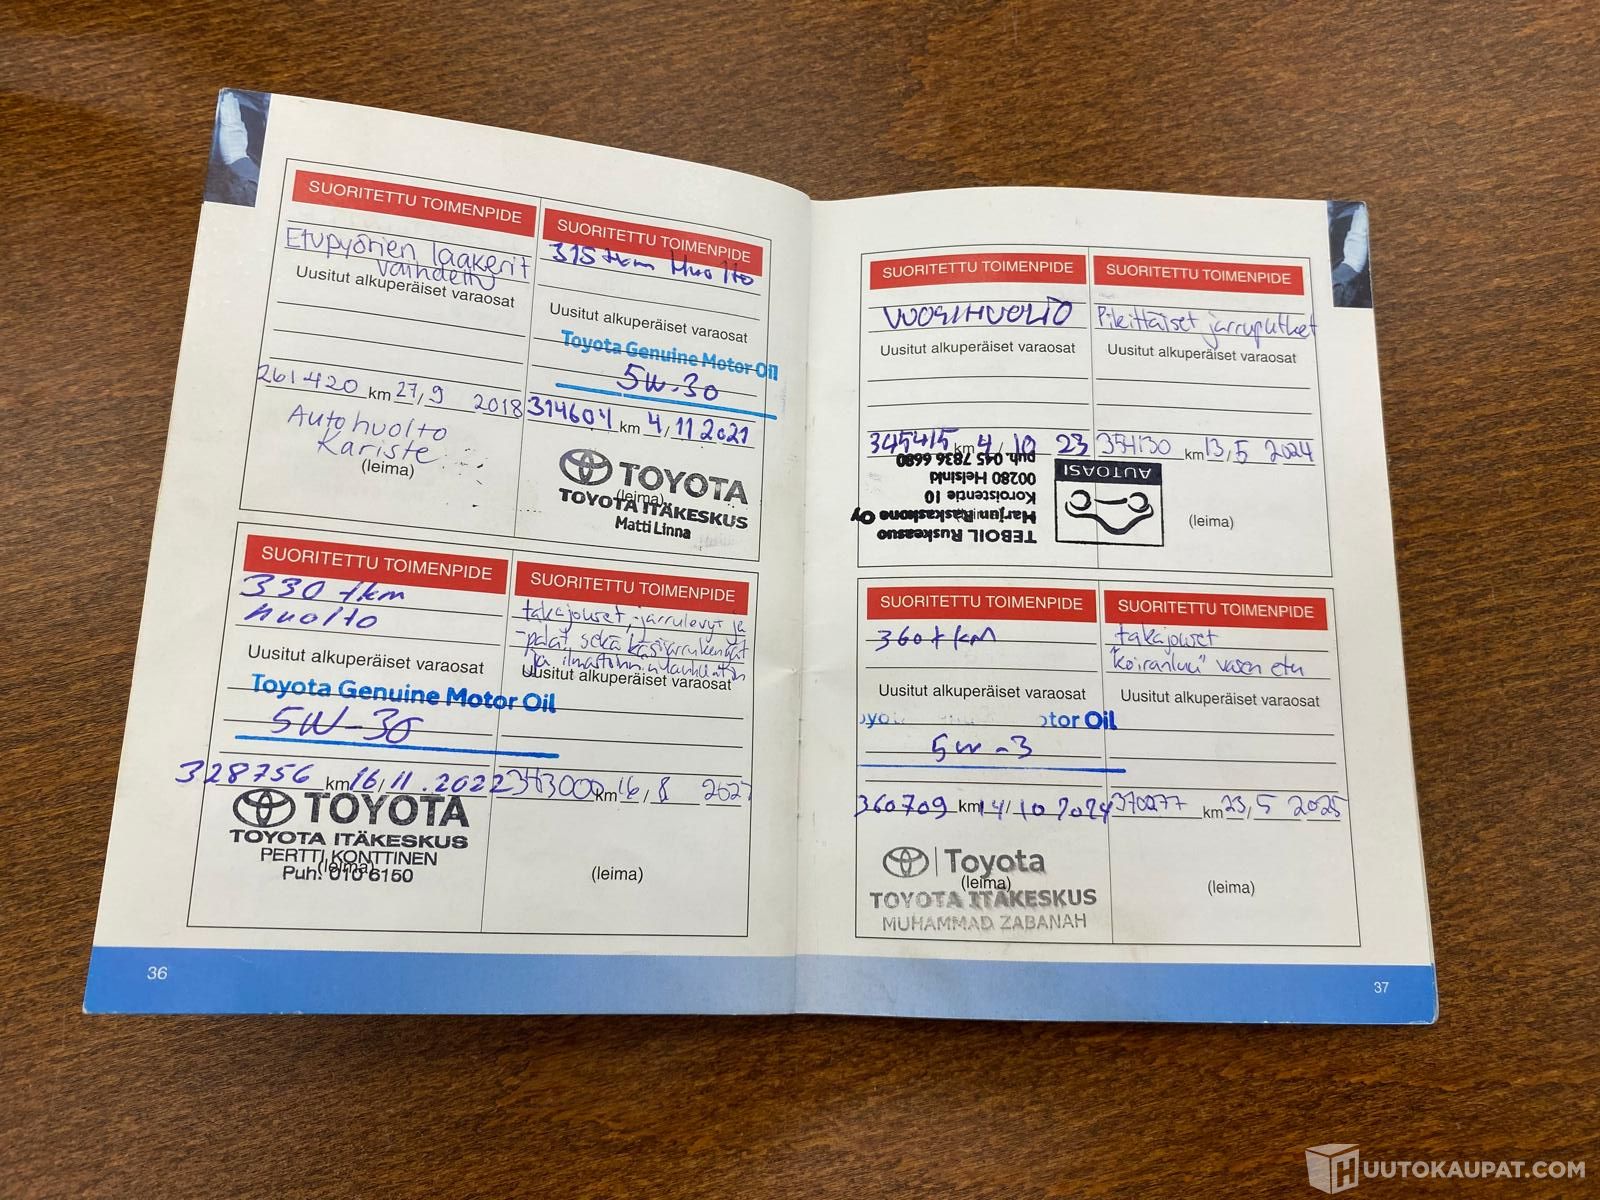 SUORITETTU TOIMENPIDE
Etupyörien laakerit
vaihdettu
Uusitut alkuperäiset varaosat
261420 km 27/9 2018
Autohuolto
Kariste
(leima)
SUORITETTU TOIMENPIDE
315 tkm Huolto
Uusitut alkuperäiset varaosat
Toyota Genuine Motor Oil
5W-30
314604 km 4/11 2021
TOYOTA
(leima)
TOYOTA ITÄKESKUS
Matti Linna
SUORITETTU TOIMENPIDE
330 tkm
huolto
Uusitut alkuperäiset varaosat
Toyota Genuine Motor Oil
5W-30
328756 km 16/11.2022
TOYOTA
TOYOTA ITÄKESKUS
PERTTI KONTTINEN
(leima)
Puh. 010 6150
SUORITETTU TOIMENPIDE
takajouset, jarrulevyt ja
-palat, sekä käsijarrukengät
ja
Uusitut alkuperäiset varaosat
343000 km 16/8
(leima)
36
SUORITETTU TOIMENPIDE
VUOSIHUOLTO
Uusitut alkuperäiset varaosat
345415 km 4/10 23
TEBOIL Ruskeasuo
Marjun Raskaskone Oy
Koroistentie 10
00280 Helsinki
puh. 045 7836 6680
AUTOASI
SUORITETTU TOIMENPIDE
Pikittäiset jarruputket
Uusitut alkuperäiset varaosat
354130 km 13/5 2024
(leima)
SUORITETTU TOIMENPIDE
360 tkm
Uusitut alkuperäiset varaosat
oyo otor Oil
5W-3
360709 km 14/10 2024
Toyota
(leima)
TOYOTA ITÄKESKUS
MUHAMMAD ZABANAH
SUORITETTU TOIMENPIDE
takajouset
"koiranluu" vasen etu
Uusitut alkuperäiset varaosat
370277 km 23/5 2025
(leima)
37
HUUTOKAUPAT.COM